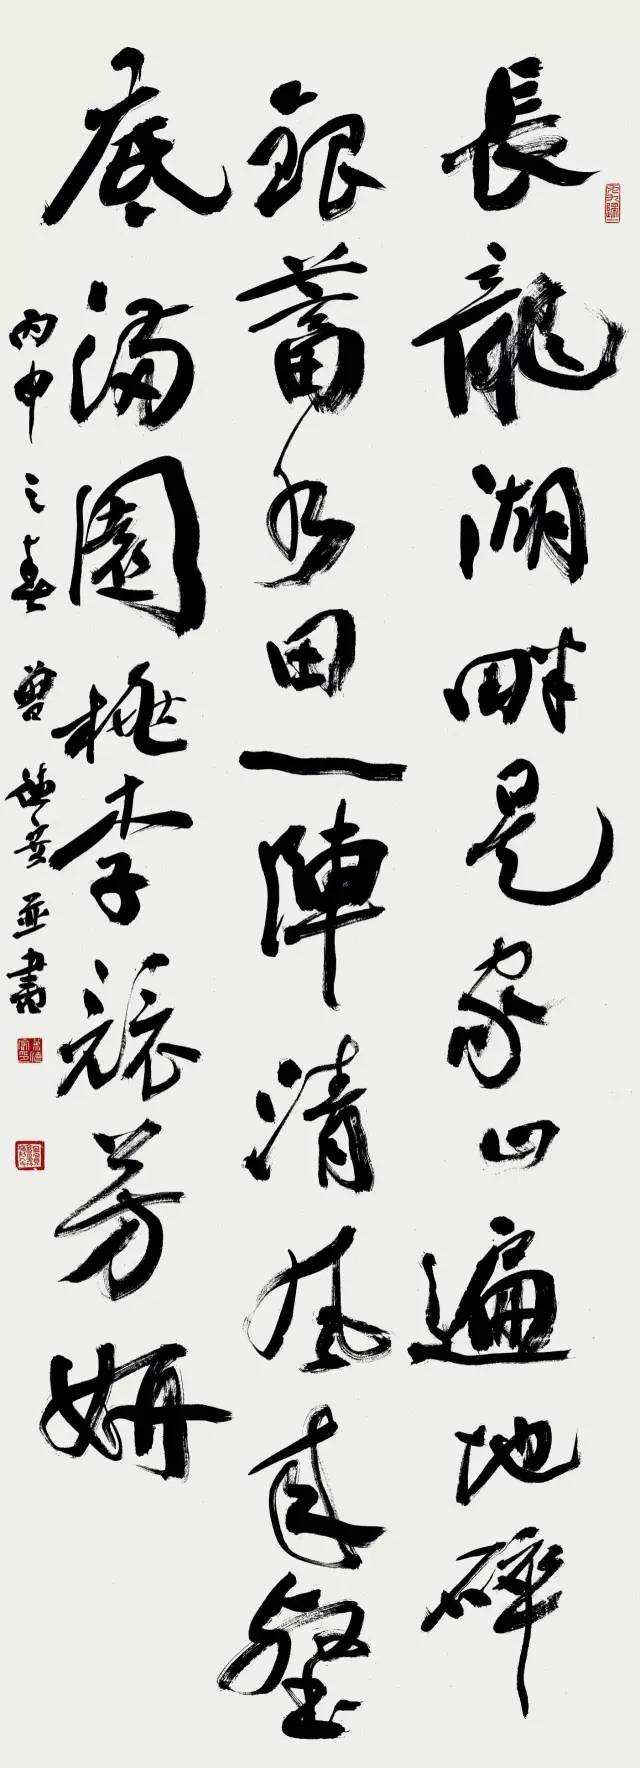 長龍湖畔是家山遍地碎
銀蓄水田一陣清風來壑
底滿園桃李競芳妍
丙申之春曾德並書